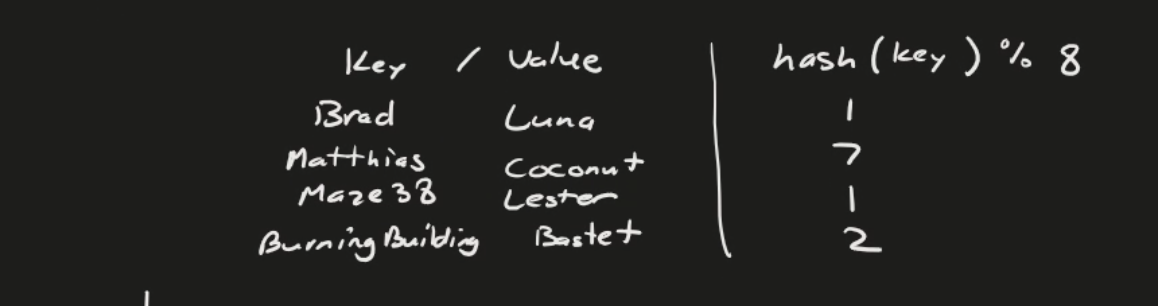 Key / Value hash(key) % 8
Brad Luna 1
Matthias Coconut 7
Maze38 Lester 1
BurningBuilding Bastet 2